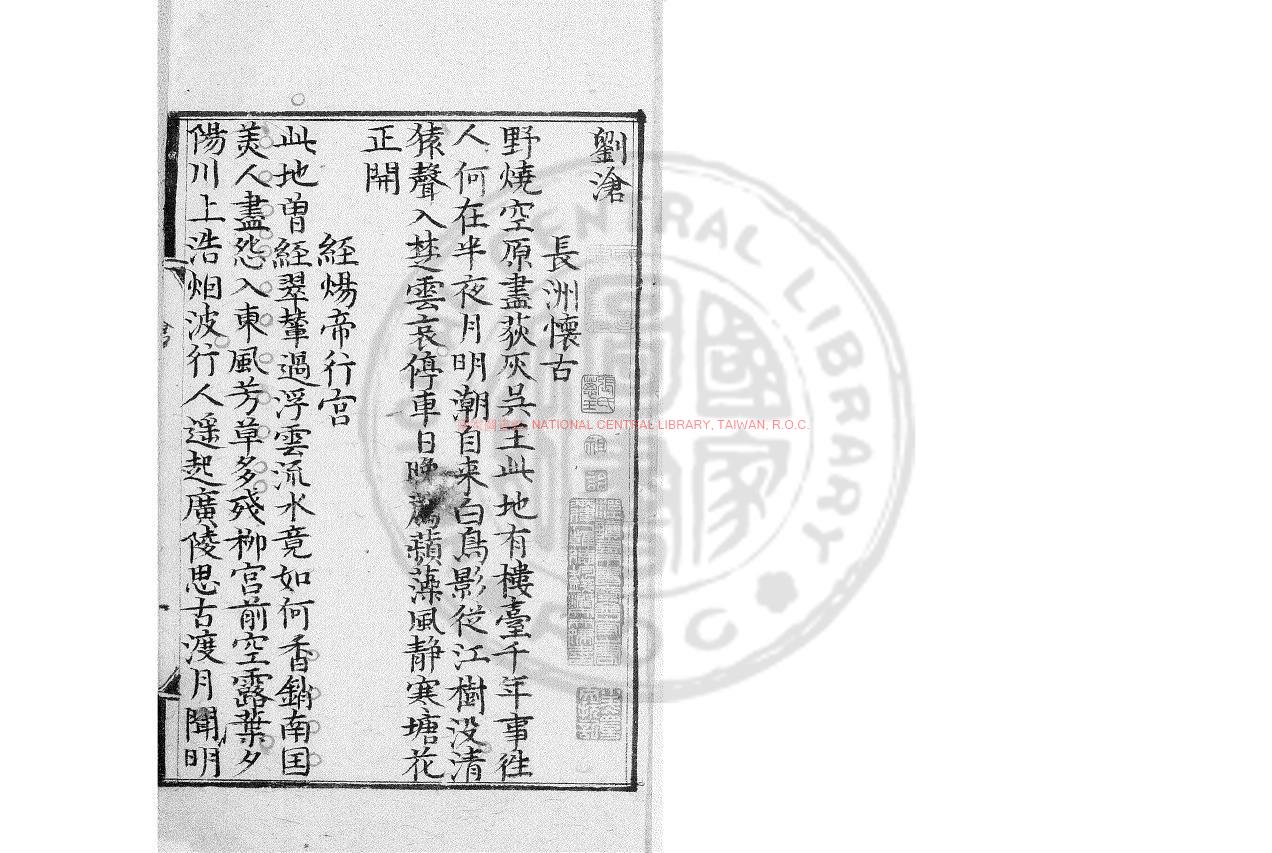 劉滄
長洲懷古
野燒空原盡荻灰吳王此地有樓臺千年事往
人何在半夜月明潮自来白鳥影從江樹没清
猿聲入楚雲哀停車日晚薦蘋藻風静寒塘花
正開
経煬帝行宫
此地曽経翠輦過浮雲流水竟如何香銷南国
美人盡怨入東風芳草多殘栁宫前空露葉夕
陽川上浩烟波行人遥起廣陵思古渡月聞明
NATIONAL CENTRAL LIBRARY, TAIWAN, R.O.C.
CENTRAL LIBRARY